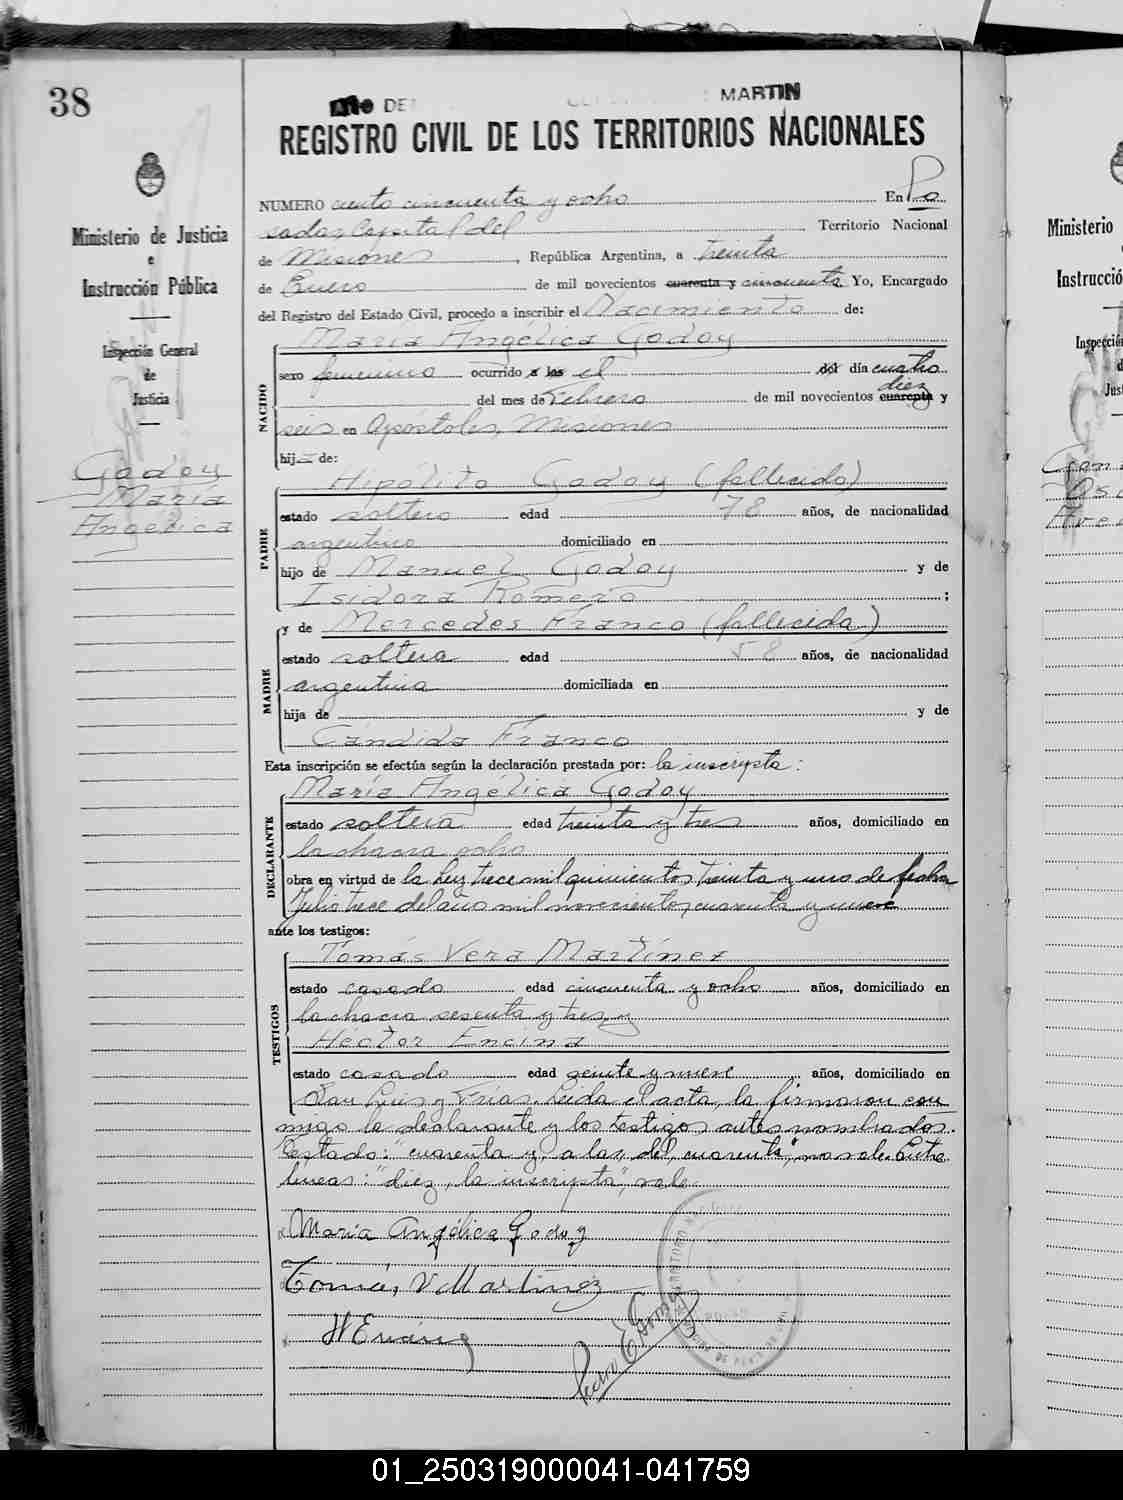 38
Año DEL MARTIN
REGISTRO CIVIL DE LOS TERRITORIOS NACIONALES
Ministerio de Justicia
e
Instrucción Pública
Inspección General
de
Justicia
Godoy
María
Angélica
NUMERO ciento cincuenta y ocho En Po
sadas Capital del Territorio Nacional
de Misiones, República Argentina, a treinta
de Enero de mil novecientos cuarenta y cincuenta Yo, Encargado
del Registro del Estado Civil, procedo a inscribir el Nacimiento de:
María Angélica Godoy
NACIDO
sexo femenino ocurrido a las el del día cuatro
diez
del mes de Febrero de mil novecientos cuarenta y
seis en Apóstoles, Misiones
hij de:
PADRE
Hipólito Godoy (fallecido)
estado soltero edad 78 años, de nacionalidad
argentino domiciliado en
hijo de Manuel Godoy y de
Isidora Romero ;
MADRE
y de Mercedes Franco (fallecida)
estado soltera edad 58 años, de nacionalidad
argentina domiciliada en
hija de y de
Cándida Franco
Esta inscripción se efectúa según la declaración prestada por: la inscripta:
DECLARANTE
María Angélica Godoy
estado soltera edad treinta y tres años, domiciliado en
la chacra ocho
obra en virtud de la Ley trece mil quinientos treinta y uno de fecha
Julio trece del año mil novecientos cuarenta y nueve
ante los testigos:
TESTIGOS
Tomás Vera Martínez
estado casado edad cincuenta y ocho años, domiciliado en
la chacra sesenta y tres, y
Hector Encina
estado casado edad veinte y nueve años, domiciliado en
San Luis y Frias. Leida el acta, la firmaron con
migo la declarante y los testigos antes nombrados.
Testado: "cuarenta y, a las, del, cuarenta", no vale. Entre
lineas: "diez, la inscripta", vale.
María Angélica Godoy
Tomás V Martínez
H Encina
Ministerio
Instrucció
Inspecció
d
Jus
01_250319000041-041759